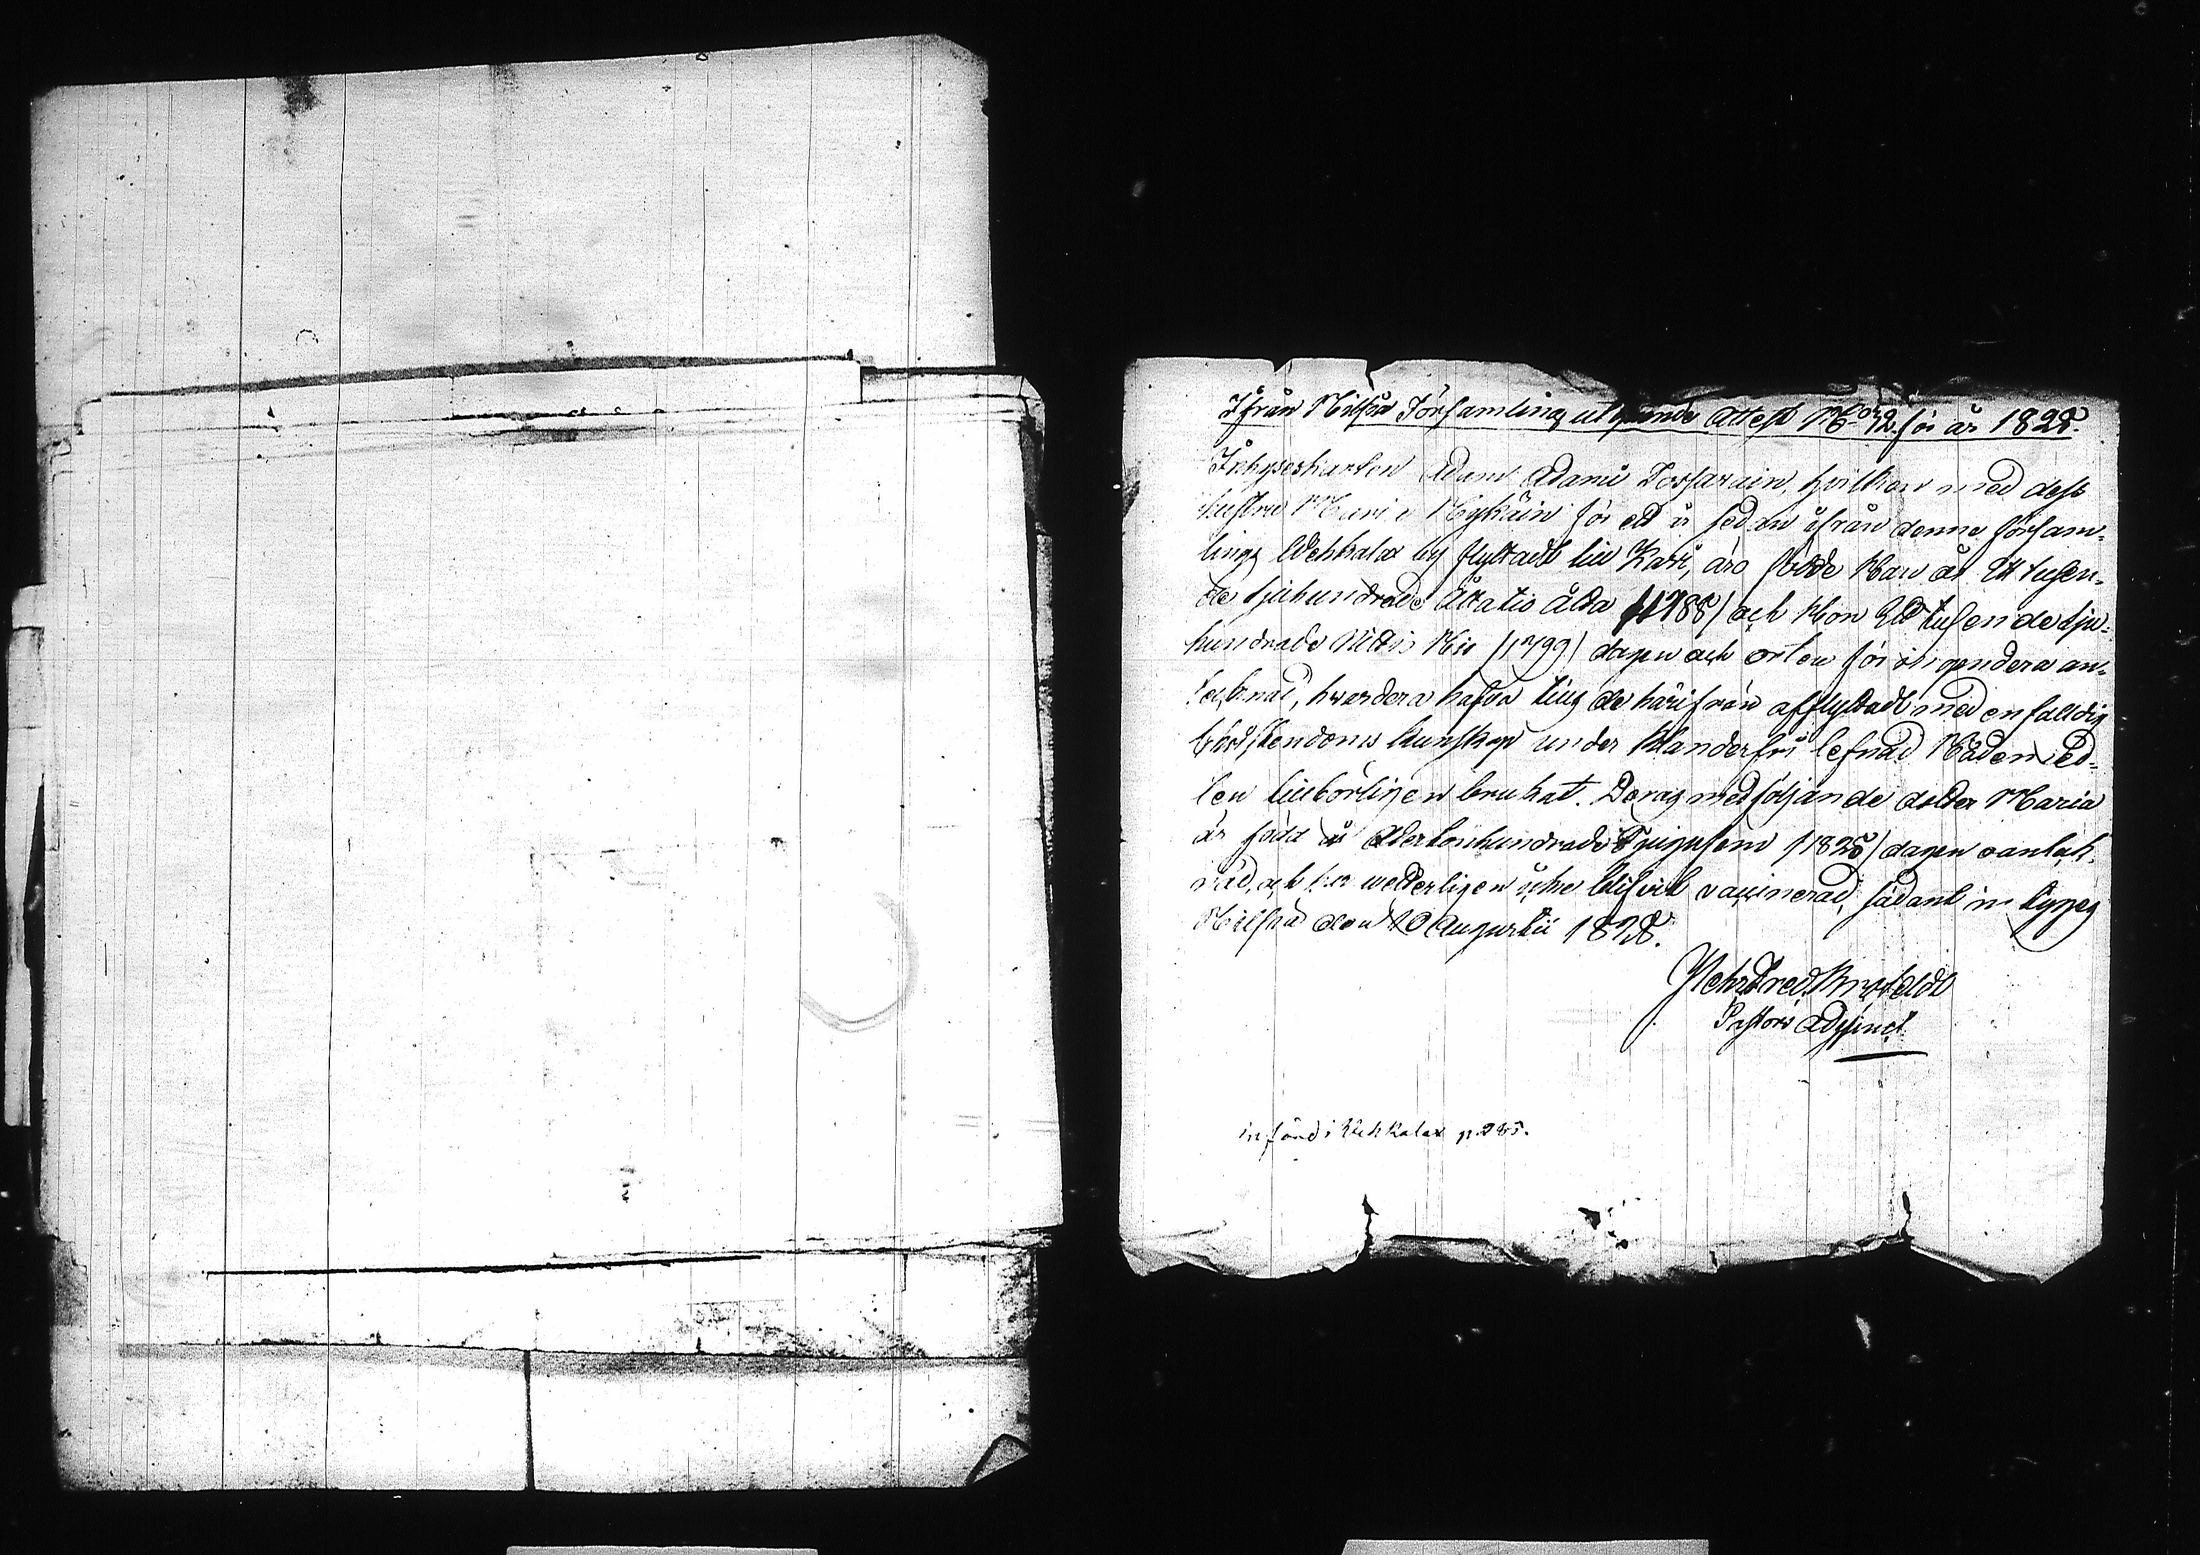 Ifrån Nilsiä Församling utgående Attest No 92. för år 1828.
Inhyseskarlen Adam Adamss. Tossavain, hvilken med dess
hustru Maria Mykäin för ett år sedan ifrån denne försam-
lings Wehkalax by flyttadt till Kavi, äro födde Han år Ett tusen-
de sjuhundrade Åttatio åtta /1788/ och Hon Ett tusende sju-
hundrade Nittio Nio /1799/ dagen och orten för ingendera an-
tecknad, hvardera hafva tills de härifrån afflyttadt med enfaldig
Christendoms kunskap under klanderfri lefnad Nådemed-
len tillbörligen brukat. Deras medföljande dotter Maria
är född år Adertonhundrade Tjugufem /1825/ dagen oanteck-
nad, och har wetterligen icke blifvit vaccinerad, sådant intygas
Nilsiä den 10 Augustii 1828.
Pastors Adjunct.
införd i Wehkalax p. 285.